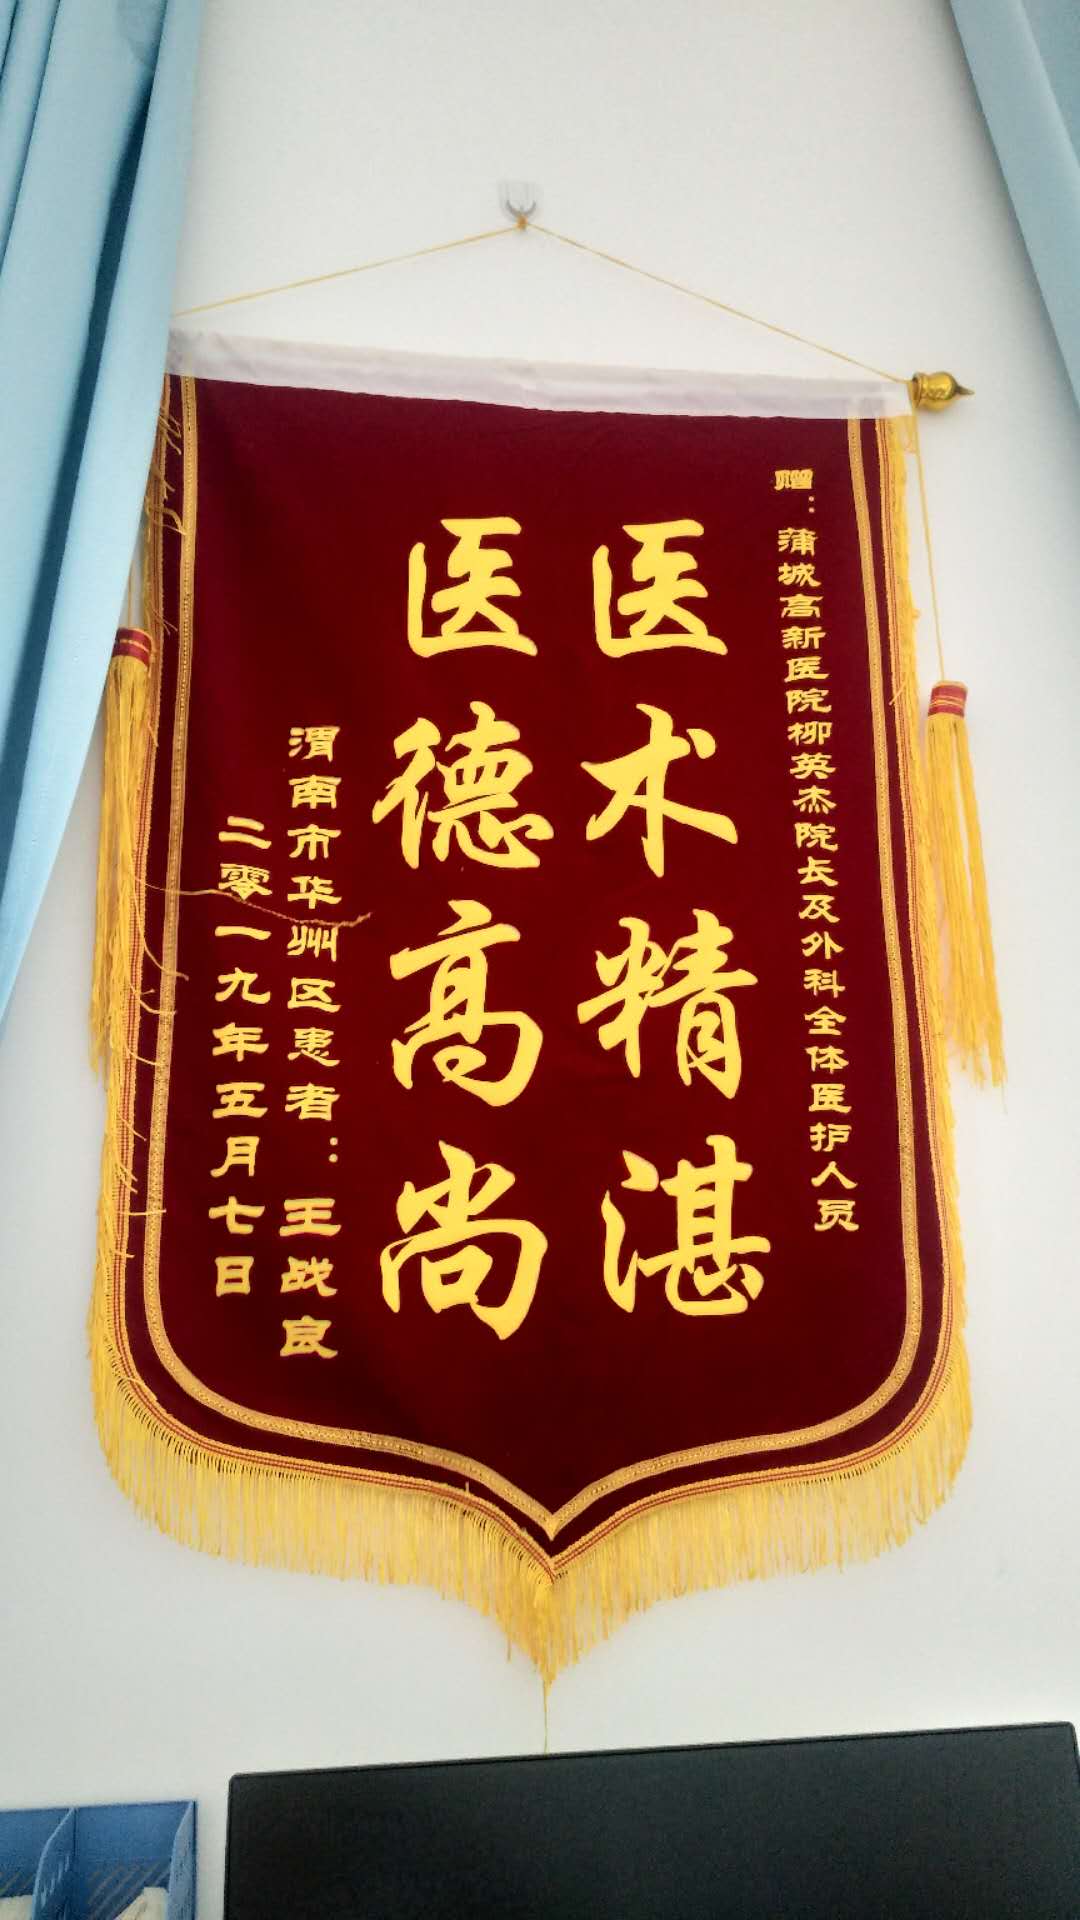 赠：蒲城高新医院柳英杰院长及外科全体医护人员
医术精湛
医德高尚
渭南市华州区患者：王战良
二零一九年五月七日